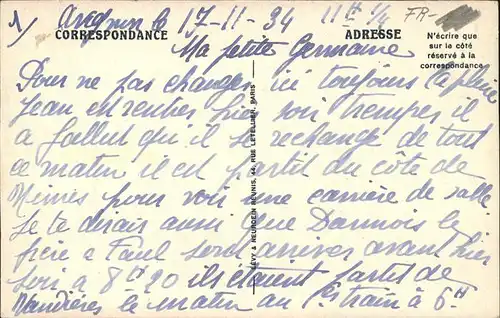 1/ Avignon le 17-11-34 11h 1/4 FR-
CORRESPONDANCE
ADRESSE
N'écrire que
sur le côté
réservé à la
correspondance
Ma petite Germaine
Pour ne pas changer ici toujours la pluie
Jean est rentrer hier soir tremper il
a fallut qu'il se rechange de tout
ce matin il est partit du côte de
Nîmes pour voir une carrière de sable
Je te dirais aussi que Dannois le
frère a Paul sont arriver avant hier
soir a 8h 20 ils étaient partit de
Mandières le matin au train à 6H
LÉVY & NEURDEIN RÉUNIS, 44, RUE LETELLIER, PARIS